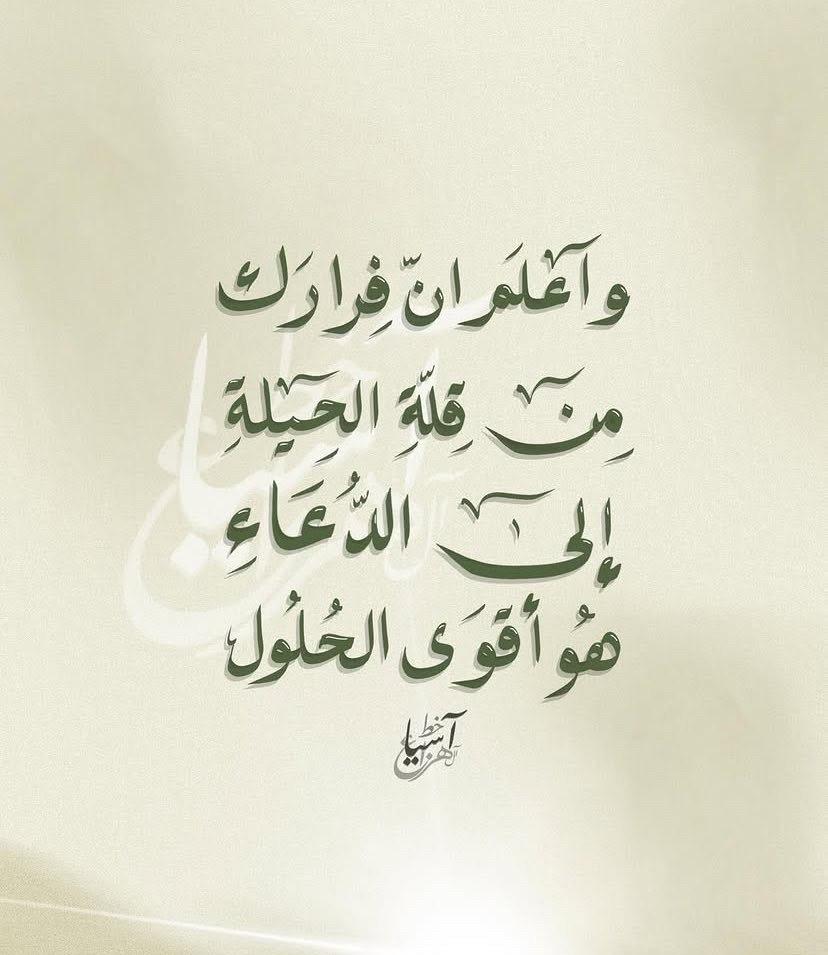 وآعلَم انّ فِرارَك
مِن قِلّةِ الحِيلةِ
إلى الدُّعَاءِ
هُو أقوَى الحُلُول
خط
آسيا